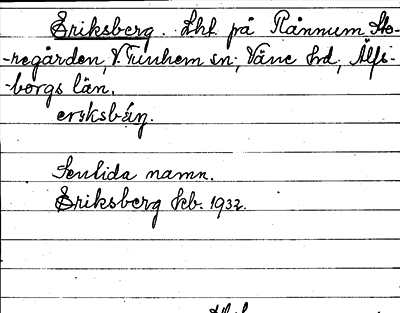 Eriksberg. Lhf. på Rånnum Sto-
-regården, V. Tunhem sn; Väne hd, Älfs-
-borgs län.
Sentida namn.
Eriksberg kb. 1932.